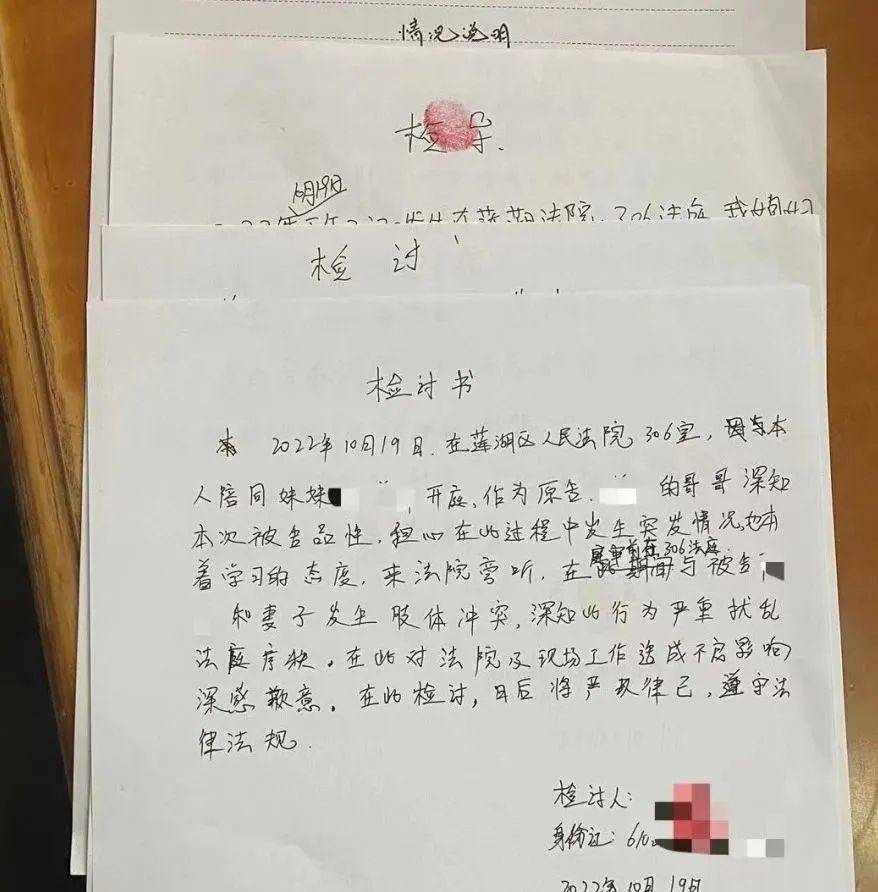 情况说明
检导.
10月19日
306法庭
检讨
检讨书
2022年10月19日.在莲湖区人民法院306室,因与本
人陪同妹妹 开庭,作为原告. 的哥哥深知
本次被告品性,担心在此过程中发生突发情况,也本
庭审前在306法庭.
着学习的态度,来法院旁听,在此期间与被告
和妻子发生肢体冲突,深知此行为严重扰乱
法庭序秩.在此对法院及现场工作造成不良影响
深感歉意.在此检讨,日后将严以律己,遵守法
律法规.
检讨人:
身份证:610
2022年10月19日